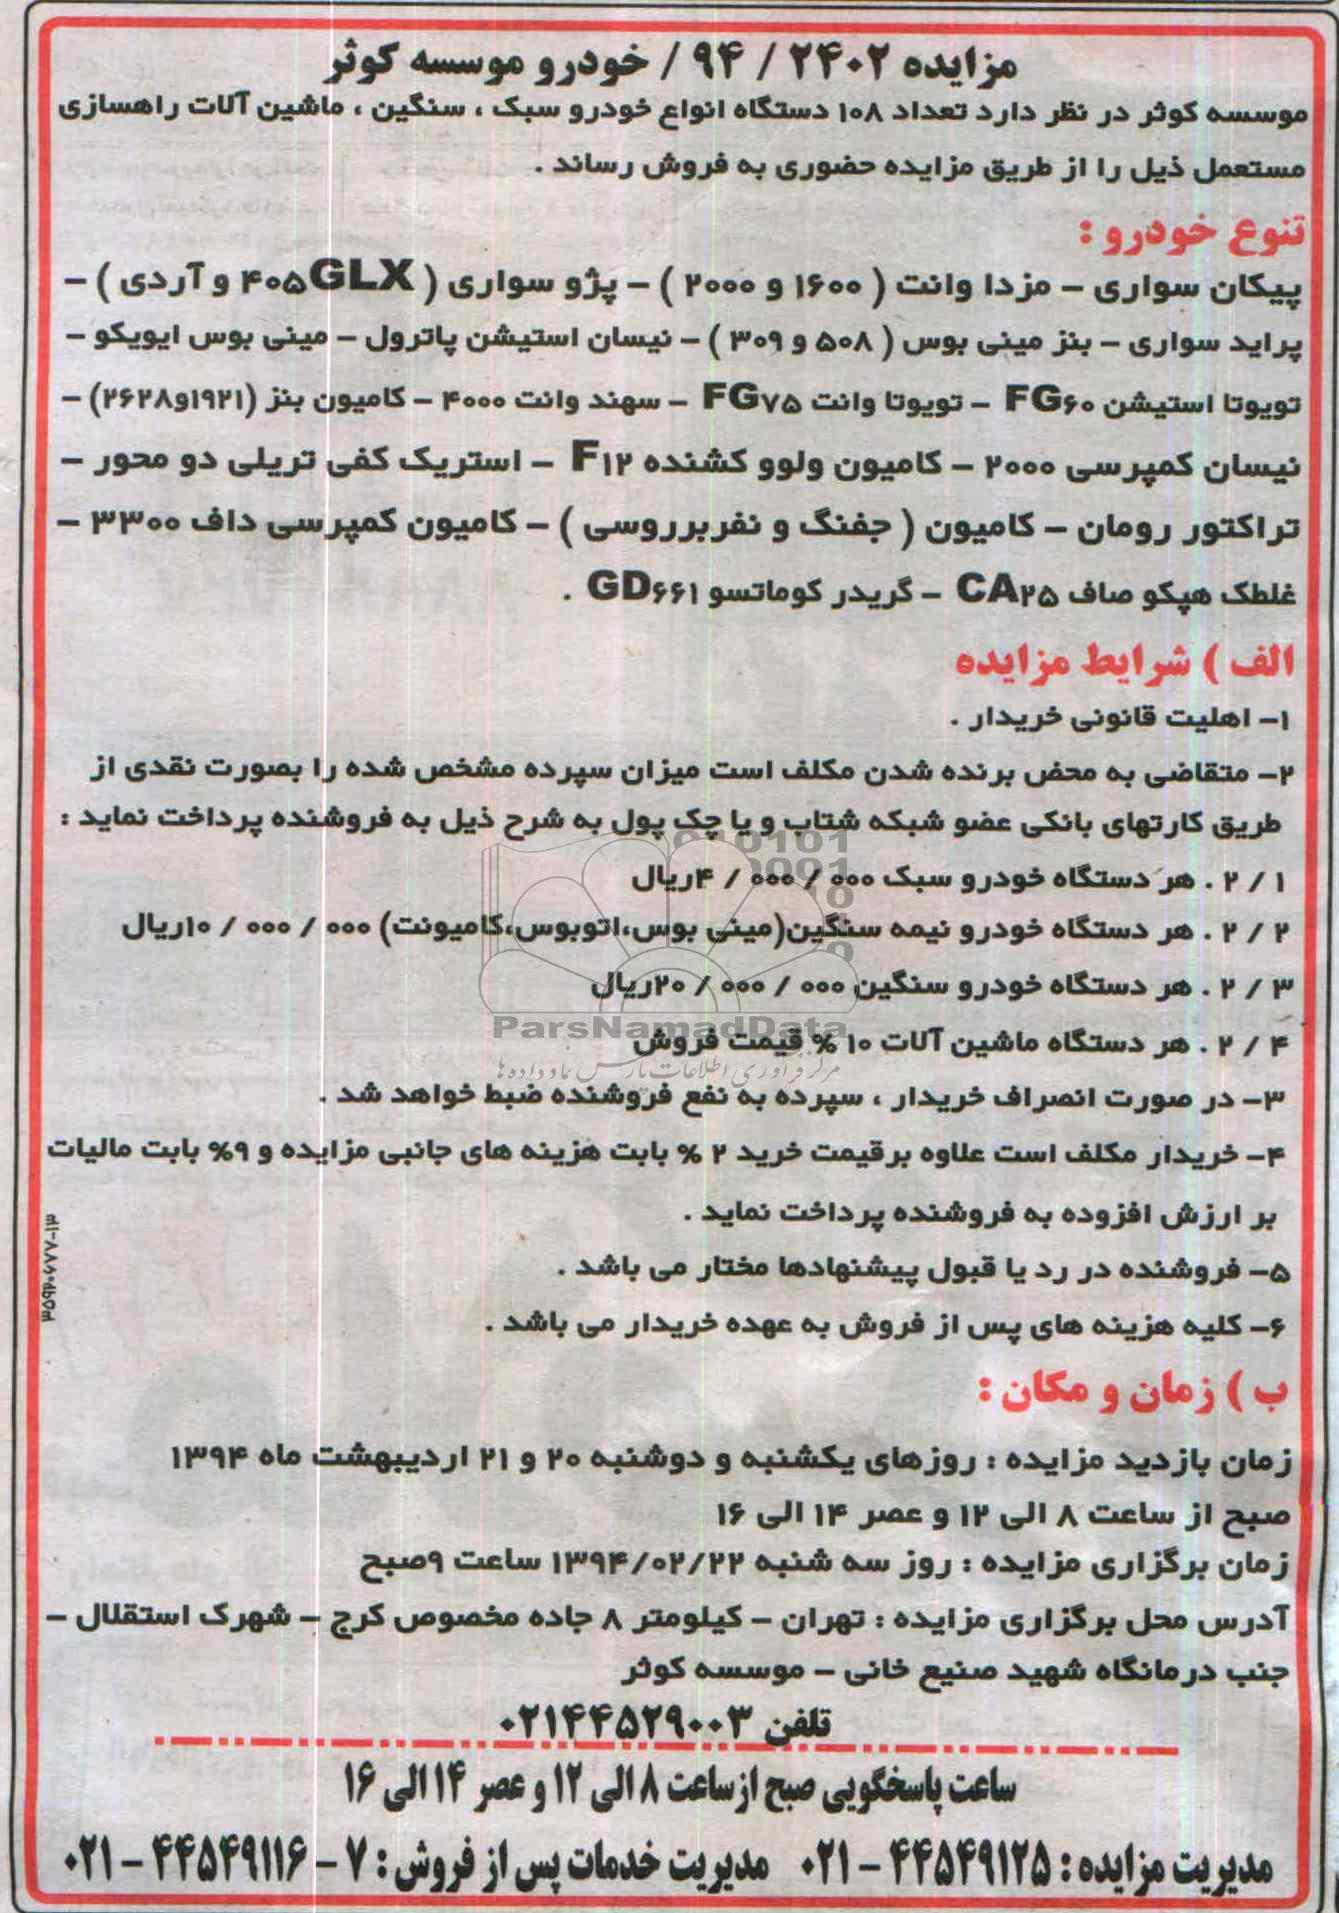 مزایده ۲۴۰۲ / ۹۴ / خودرو موسسه کوثر
موسسه کوثر در نظر دارد تعداد ۱۰۸ دستگاه انواع خودرو سبک ، سنگین ، ماشین آلات راهسازی
مستعمل ذیل را از طریق مزایده حضوری به فروش رساند .
تنوع خودرو :
پیکان سواری – مزدا وانت ( ۱۶۰۰ و ۲۰۰۰ ) – پژو سواری ( ۴۰۵GLX و آردی ) –
پراید سواری – بنز مینی بوس ( ۵۰۸ و ۳۰۹ ) – نیسان استیشن پاترول – مینی بوس ایویکو –
تویوتا استیشن FG۶۰ – تویوتا وانت FG۷۵ – سهند وانت ۴۰۰۰ – کامیون بنز (۱۹۲۱و۲۶۲۸) –
نیسان کمپرسی ۲۰۰۰ – کامیون ولوو کشنده F۱۲ – استریک کفی تریلی دو محور –
تراکتور رومان – کامیون ( جفنگ و نفربرروسی ) – کامیون کمپرسی داف ۳۳۰۰ –
غلطک هپکو صاف CA۲۵ – گریدر کوماتسو GD۶۶۱ .
الف ) شرایط مزایده
۱– اهلیت قانونی خریدار .
۲– متقاضی به محض برنده شدن مکلف است میزان سپرده مشخص شده را بصورت نقدی از
طریق کارتهای بانکی عضو شبکه شتاب و یا چک پول به شرح ذیل به فروشنده پرداخت نماید :
۲ / ۱ . هر دستگاه خودرو سبک ۰۰۰ / ۰۰۰ / ۴ریال
۲ / ۲ . هر دستگاه خودرو نیمه سنگین(مینی بوس،اتوبوس،کامیونت) ۰۰۰ / ۰۰۰ / ۱۰ریال
۲ / ۳ . هر دستگاه خودرو سنگین ۰۰۰ / ۰۰۰ / ۲۰ریال
ParsNamadData
۲ / ۴ . هر دستگاه ماشین آلات ۱۰ % قیمت فروش
مرکز فرآوری اطلاعات پارس نماد داده ها
۳– در صورت انصراف خریدار ، سپرده به نفع فروشنده ضبط خواهد شد .
۴– خریدار مکلف است علاوه برقیمت خرید ۲ % بابت هزینه های جانبی مزایده و ۹% بابت مالیات
بر ارزش افزوده به فروشنده پرداخت نماید .
۵– فروشنده در رد یا قبول پیشنهادها مختار می باشد .
۶– کلیه هزینه های پس از فروش به عهده خریدار می باشد .
ب ) زمان و مکان :
زمان بازدید مزایده : روزهای یکشنبه و دوشنبه ۲۰ و ۲۱ اردیبهشت ماه ۱۳۹۴
صبح از ساعت ۸ الی ۱۲ و عصر ۱۴ الی ۱۶
زمان برگزاری مزایده : روز سه شنبه ۱۳۹۴/۰۲/۲۲ ساعت ۹صبح
آدرس محل برگزاری مزایده : تهران – کیلومتر ۸ جاده مخصوص کرج – شهرک استقلال –
جنب درمانگاه شهید صنیع خانی – موسسه کوثر
تلفن ۰۲۱۴۴۵۲۹۰۰۳
ساعت پاسخگویی صبح ازساعت ۸ الی ۱۲ و عصر ۱۴ الی ۱۶
مدیریت مزایده : ۴۴۵۴۹۱۲۵ – ۰۲۱ مدیریت خدمات پس از فروش : ۷ – ۴۴۵۴۹۱۱۶ – ۰۲۱